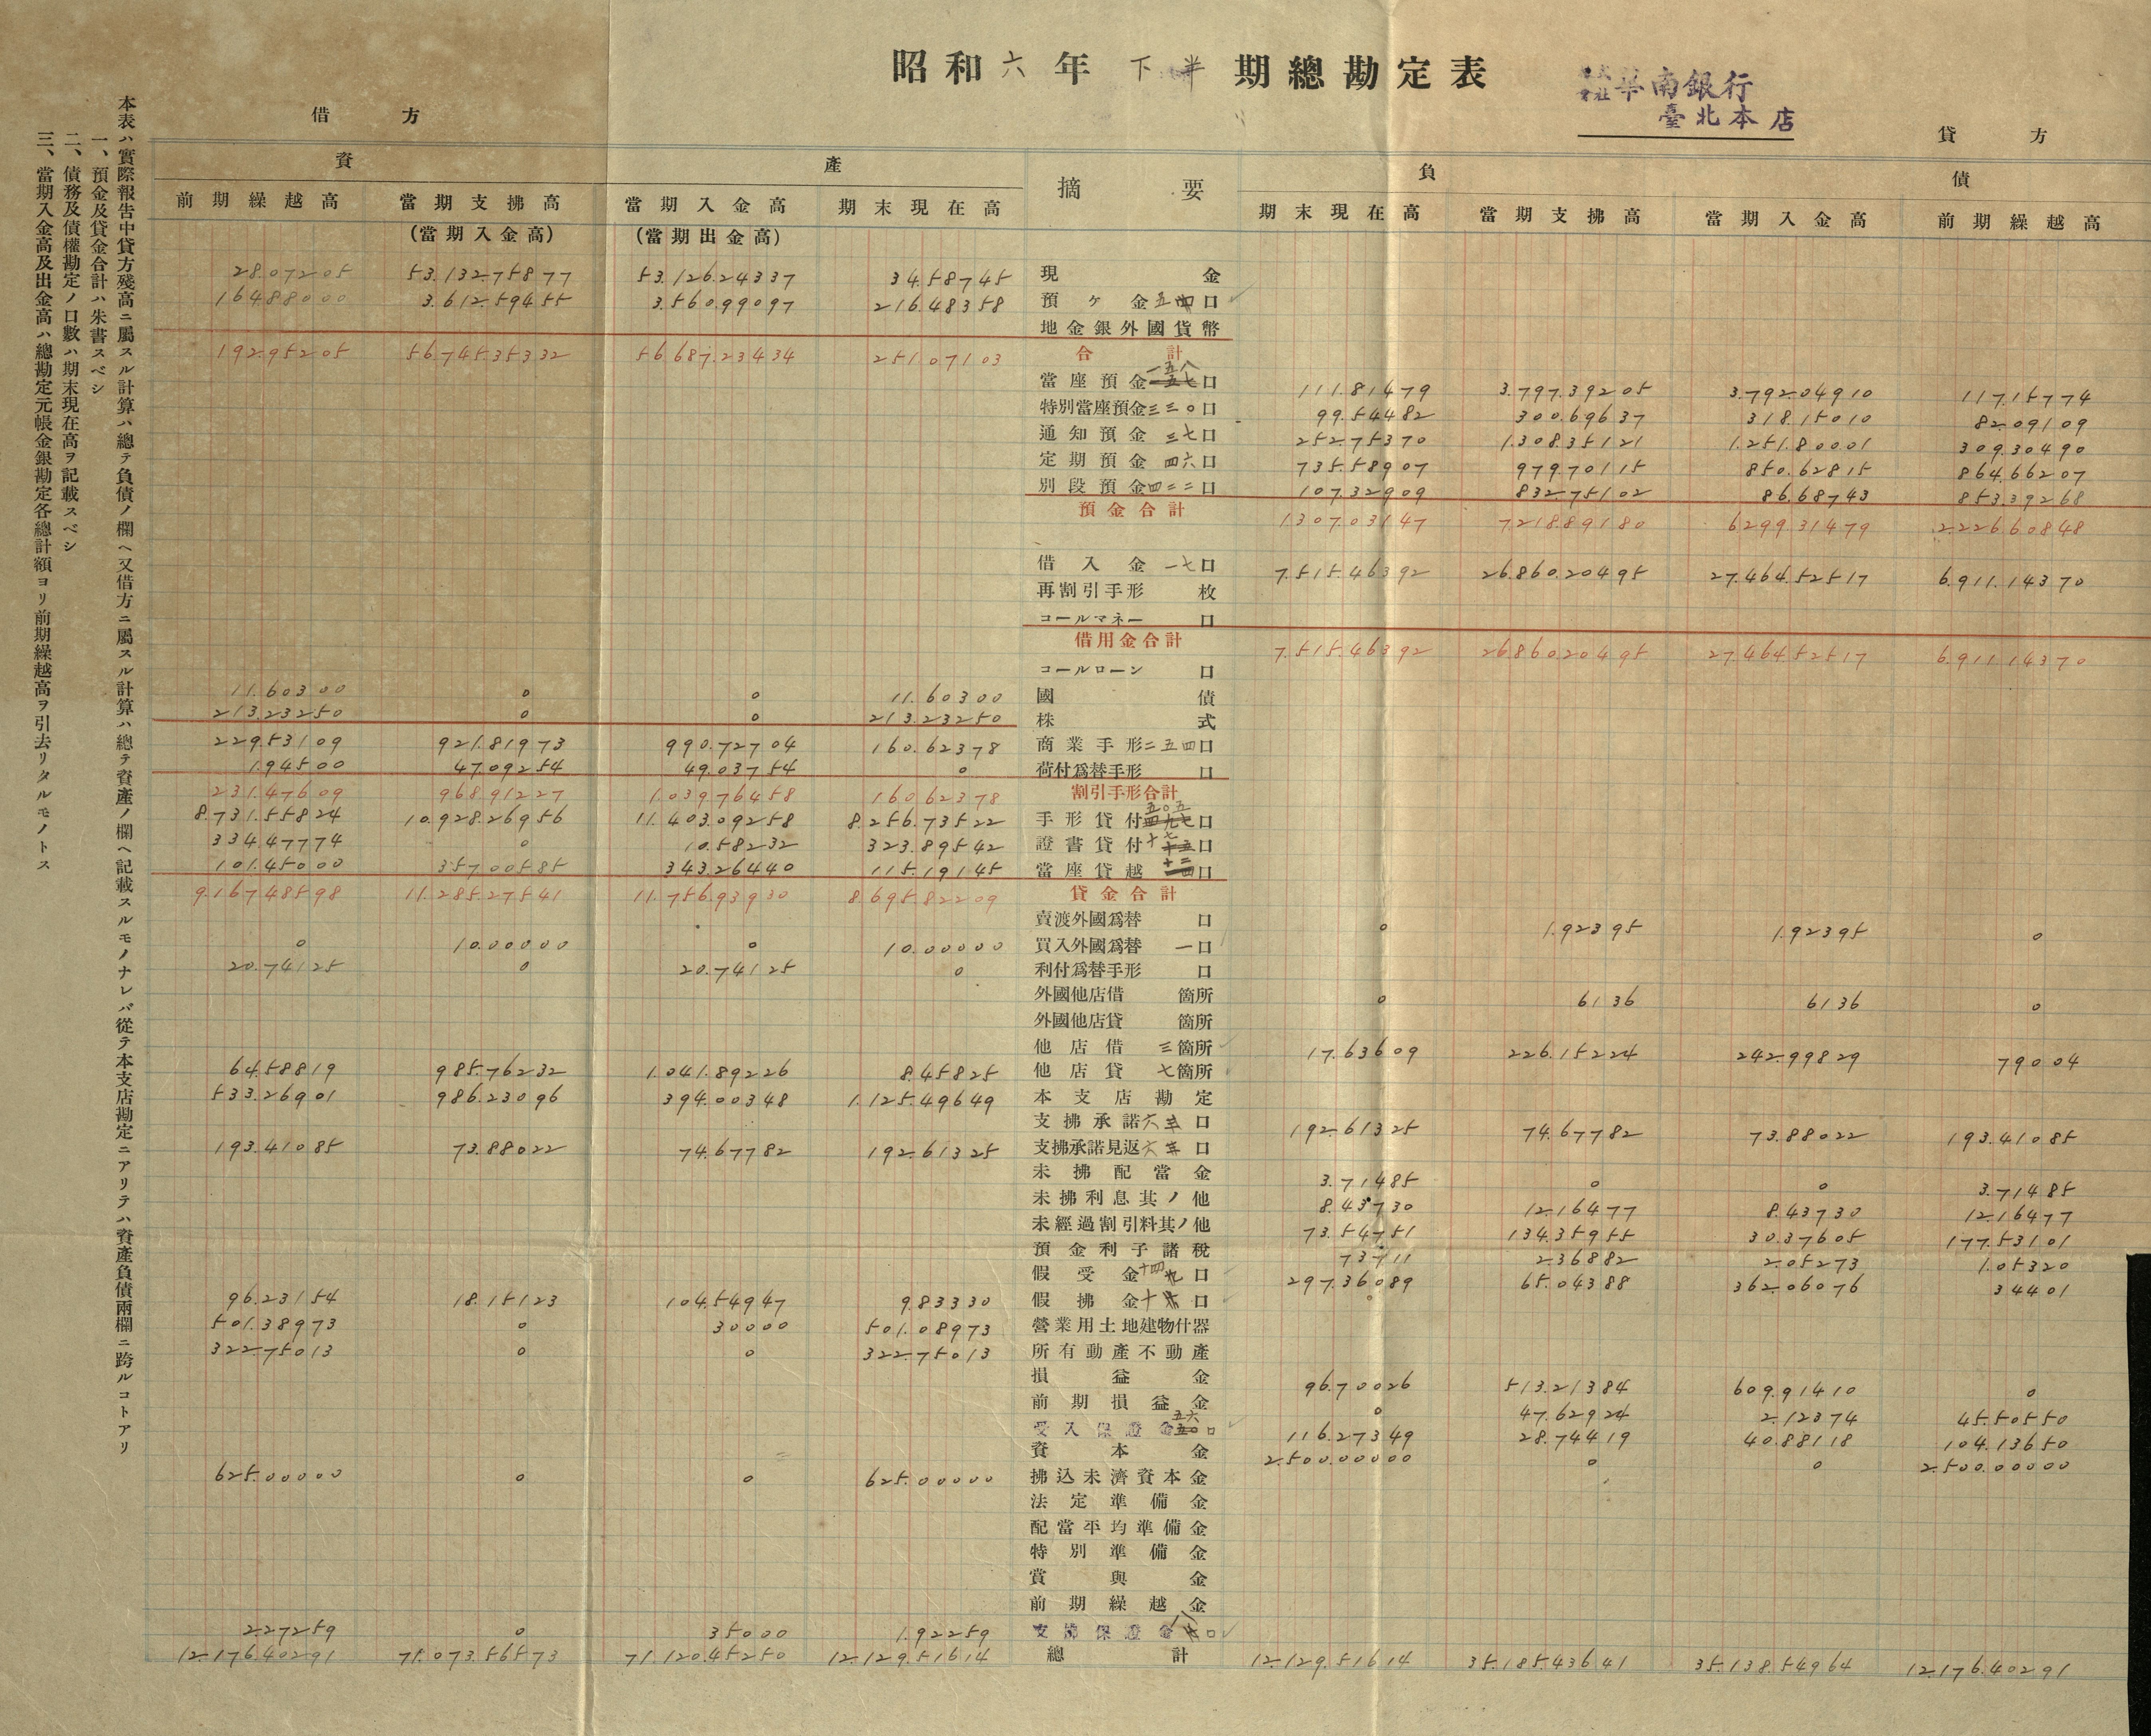 昭和六年下半期總勘定表
株式會社 華南銀行
臺北本店
借方 貸方
資產 摘要 負債
前期繰越高 當期支拂高 當期入金高 期末現在高 期末現在高 當期支拂高 當期入金高 前期繰越高
(當期入金高) (當期出金高)
28.072.05 53.132.758.77 53.126.243.37 34.587.45 現金
164.880.00 3.612.594.55 3.560.990.97 216.483.58 預ケ金 口
地金銀外國貨幣
192.952.05 56.745.353.32 56.687.234.34 251.071.03 合計
當座預金一五八口 111.814.79 3.797.392.05 3.792.049.10 117.157.74
特別當座預金三三〇口 99.544.82 300.696.37 318.150.10 82.091.09
通知預金三七口 252.753.70 1.308.351.21 1.251.800.01 309.304.90
定期預金四六口 735.589.07 979.701.15 850.628.15 864.662.07
別段預金四二二口 107.329.09 832.751.02 86.687.43 853.392.68
預金合計 1.307.031.47 7.218.891.80 6.299.314.79 2.226.608.48
借入金一七口 7.515.463.92 26.860.204.95 27.464.525.17 6.911.143.70
再割引手形 枚
コールマネー 口
借用金合計 7.515.463.92 26.860.204.95 27.464.525.17 6.911.143.70
コールローン 口
11.603.00 0 0 11.603.00 國債
213.232.50 0 0 213.232.50 株式
229.531.09 921.819.73 990.727.04 160.623.78 商業手形二五四口
1.945.00 47.092.54 49.037.54 0 荷付爲替手形 口
231.476.09 968.912.27 1.039.764.58 160.623.78 割引手形合計
8.731.558.24 10.928.269.56 11.403.092.58 8.256.735.22 手形貸付五〇五口
334.477.74 0 10.582.32 323.895.42 證書貸付十七口
101.450.00 357.005.85 343.264.40 115.191.45 當座貸越十二口
9.167.485.98 11.285.275.41 11.756.939.30 8.695.822.09 貸金合計
賣渡外國爲替 口 0 1.923.95 1.923.95 0
0 10.000.00 0 10.000.00 買入外國爲替一口
20.741.25 0 20.741.25 0 利付爲替手形 口
外國他店借 箇所 0 61.36 61.36 0
外國他店貸 箇所
他店借三箇所 17.636.09 226.152.24 242.998.29 790.04
64.588.19 985.762.32 1.041.892.26 8.458.25 他店貸七箇所
533.269.01 986.230.96 394.003.48 1.125.496.49 本支店勘定
支拂承諾六 口 192.613.25 74.677.82 73.880.22 193.410.85
193.410.85 73.880.22 74.677.82 192.613.25 支拂承諾見返六 口
未拂配當金 3.714.85 0 0 3.714.85
未拂利息其ノ他 8.437.30 12.164.77 8.437.30 12.164.77
未經過割引料其ノ他 73.547.51 134.359.55 30.376.05 177.531.01
預金利子諸稅 737.11 2.368.82 2.052.73 1.053.20
假受金十四口 297.360.89 65.043.88 362.060.76 344.01
96.231.54 18.151.23 104.549.47 9.833.30 假拂金十 口
501.389.73 0 300.00 501.089.73 營業用土地建物什器
322.750.13 0 0 322.750.13 所有動產不動產
損益金 96.700.26 513.213.84 609.914.10 0
前期損益金 0 47.629.24 2.123.74 45.505.50
受入保證金五六口 116.273.49 28.744.19 40.881.18 104.136.50
資本金 2.500.000.00 0 0 2.500.000.00
625.000.00 0 0 625.000.00 拂込未濟資本金
法定準備金
配當平均準備金
特別準備金
賞與金
前期繰越金
2.272.59 0 350.00 1.922.59 支拂保證金八口
12.176.402.91 71.073.565.73 71.120.452.50 12.129.516.14 總計 12.129.516.14 35.185.436.41 35.138.549.64 12.176.402.91
本表ハ實際報告中貸方殘高ニ屬スル計算ハ總テ負債ノ欄ヘ又借方ニ屬スル計算ハ總テ資產ノ欄ヘ記載スルモノナレバ從テ本支店勘定ニアリテハ資產負債兩欄ニ跨ルコトアリ
一、預金及貸金合計ハ朱書スベシ
二、債務及債權勘定ノ口數ハ期末現在高ヲ記載スベシ
三、當期入金高及出金高ハ總勘定元帳金銀勘定各總計額ヨリ前期繰越高ヲ引去リタルモノトス